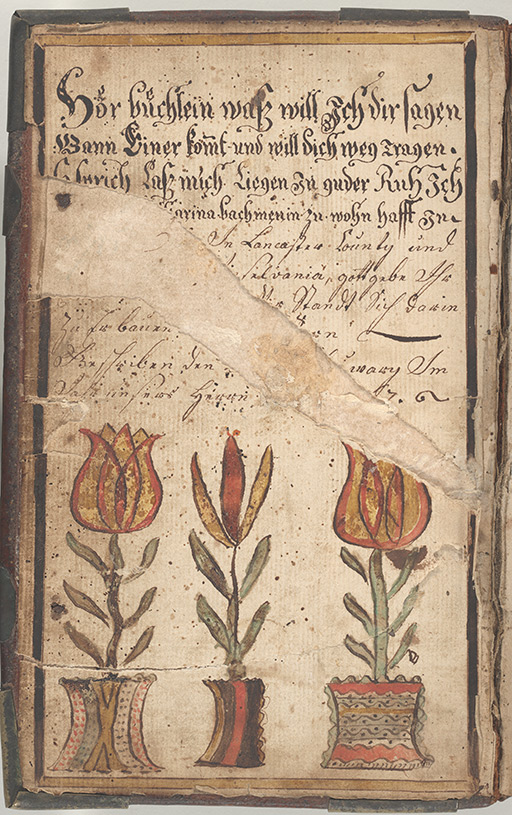 Hör büchlein waß will Ich dir sagen
Wann Einer kom̅t und will dich weg Tragen.
Laß mich Liegen In guder Ruh Ich
Carina bachmenin zu wohn hafft In
In Lancaster County und
selvania, gott gebe Ihr
Standt Sich darin
Zu Erbauen
Geschriben den uwary Im
Jahr unsers Herrn